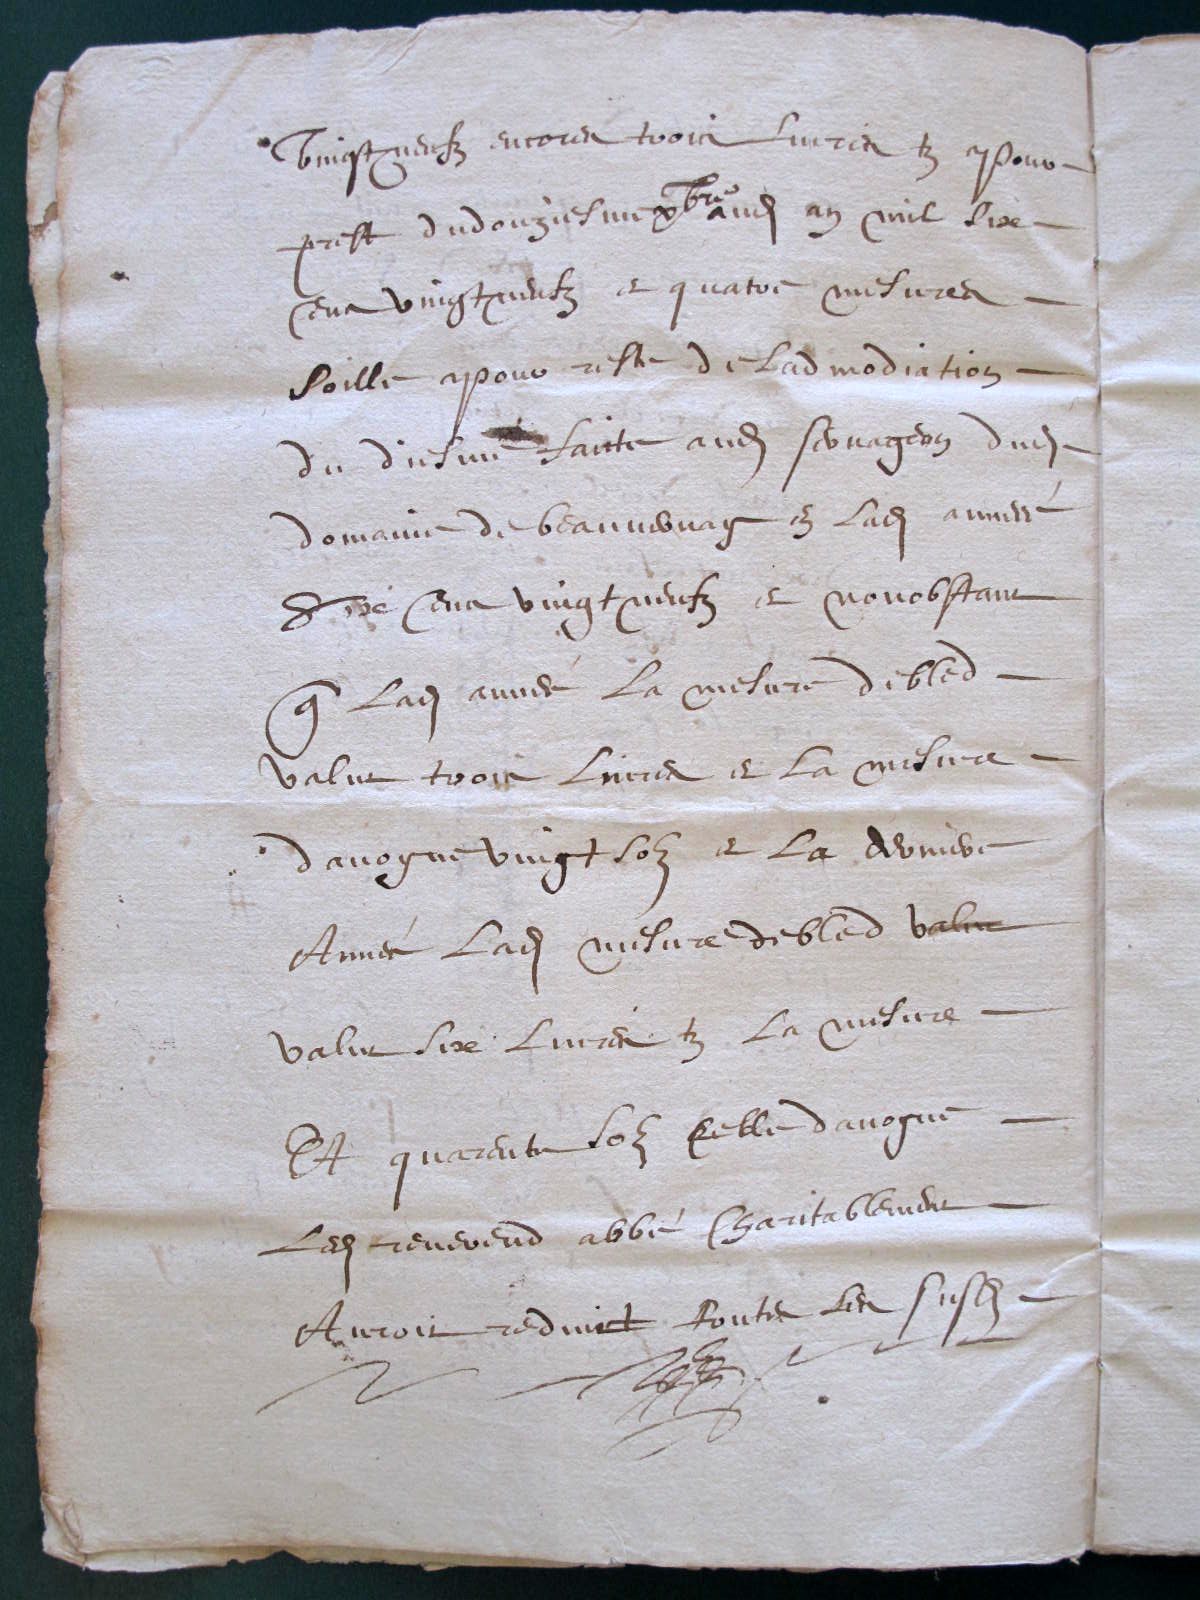 vingt neufz encores trois livres tz pour
prest du douziesme xbre aud an mil six
cens vingt neufz et quatre mesures
soille pour reste de ladmodiation
du diesme faicte aud servageon dud
domaine de beauvernay en lad année
Six cens vingt neufz et nonobstant
q lad année la mesure de bled
valut trois livres et la mesure
davoyne vingt solz et la derniere
Année lad mesure de bled valut
valut six livres tz la mesure
Et quarente solz celle davoyne
Led reverend abbé Charitablement
Auroit reduict toutes les susd